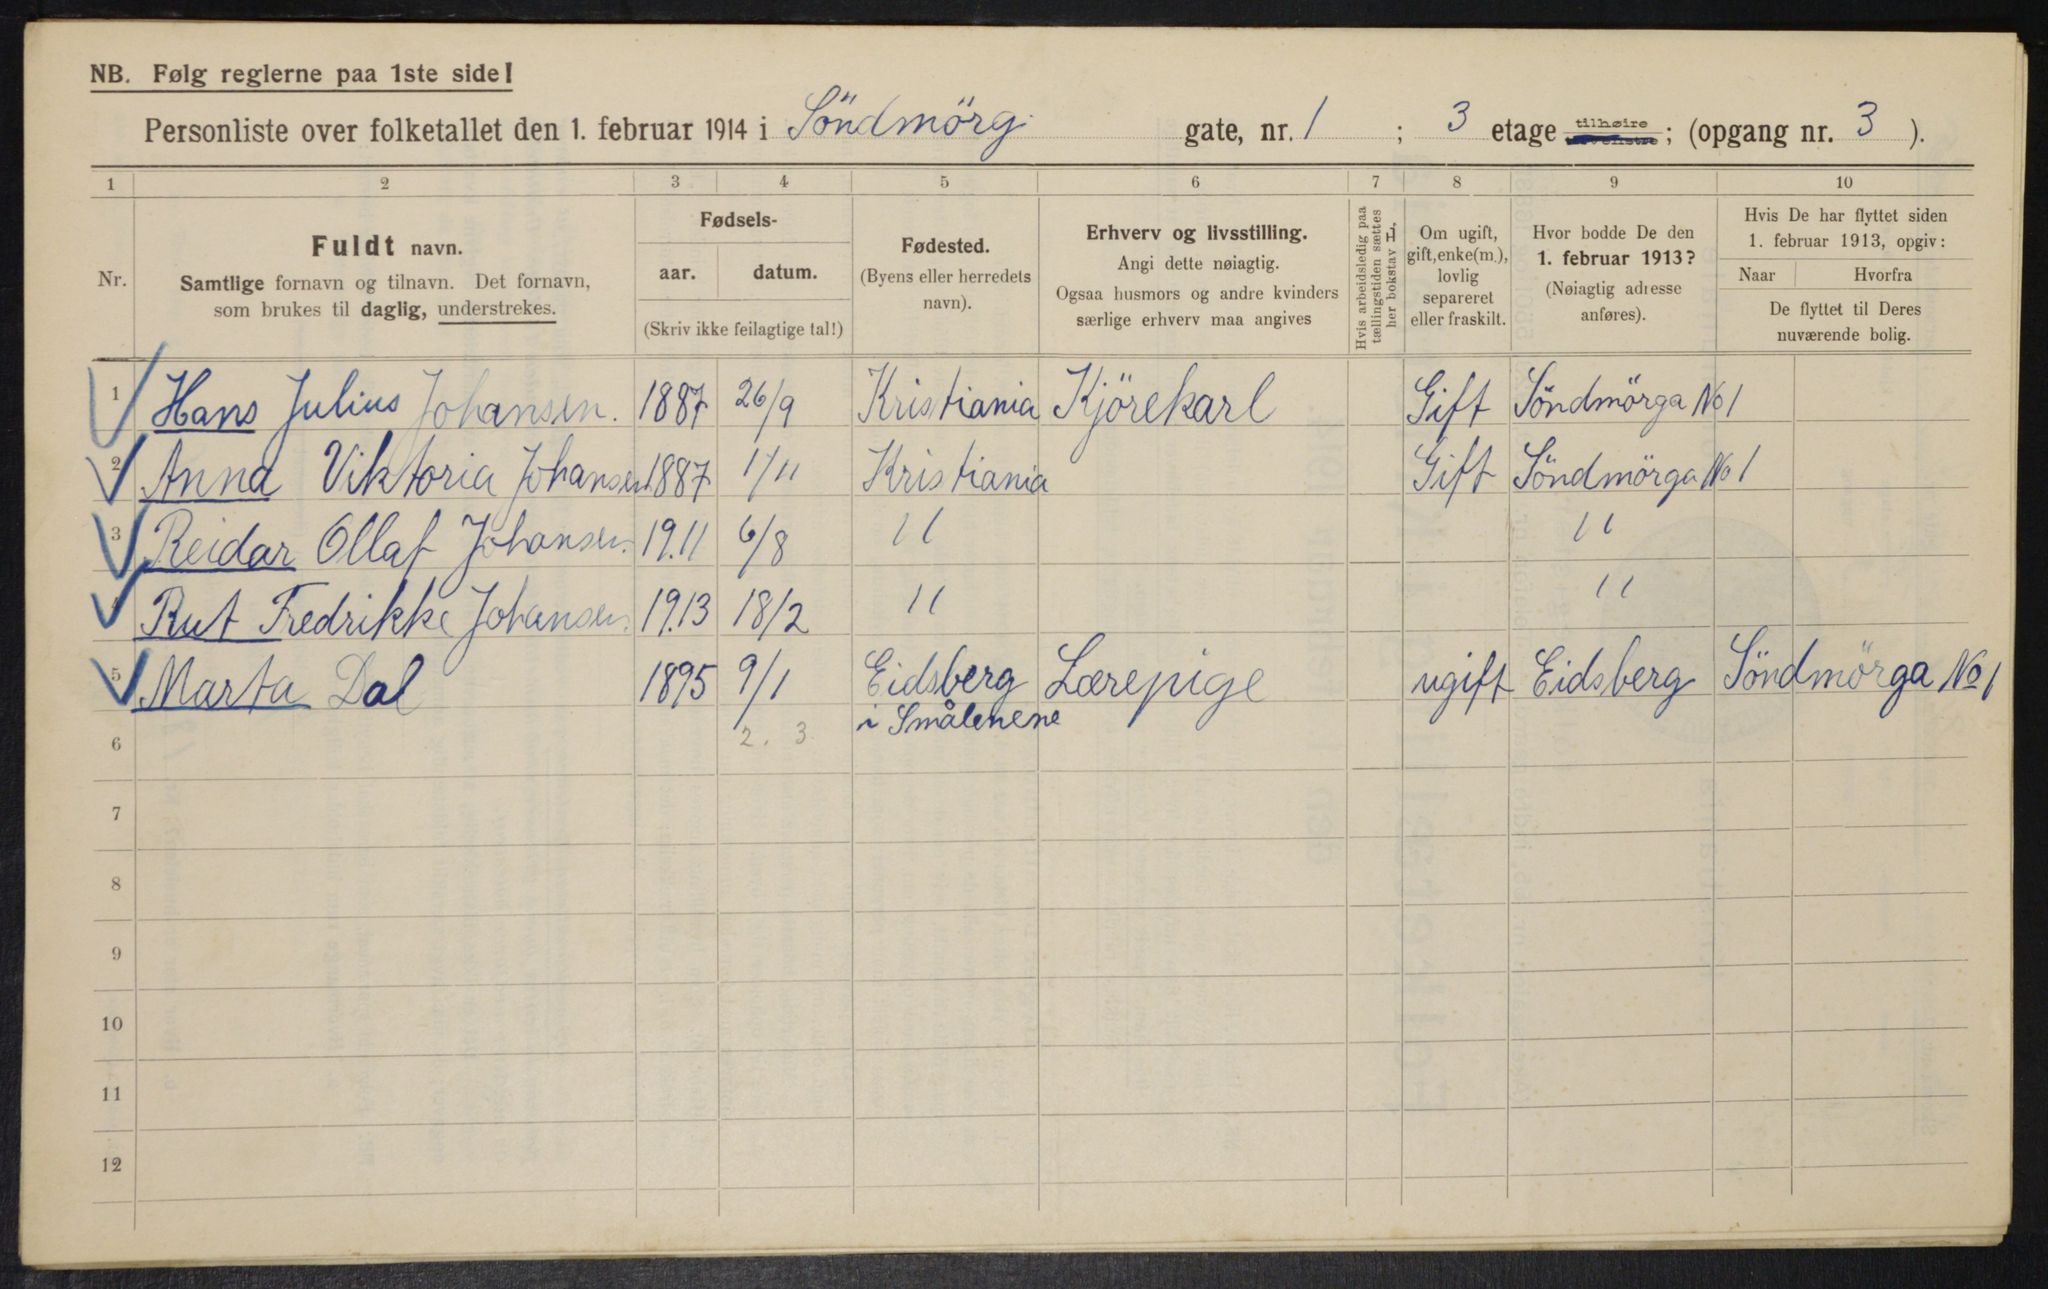 NB. Følg reglerne paa 1ste side!
Personliste over folketallet den 1. februar 1914 i Söndmörg gate, nr. 1 ; 3 etage tilhøire ; (opgang nr. 3 ).
1 2 3 4 5 6 7 8 9 10
Nr.
Fuldt navn.
Samtlige fornavn og tilnavn. Det fornavn,
som brukes til daglig, understrekes.
Fødsels-
aar. datum.
(Skriv ikke feilagtige tal!)
Fødested.
(Byens eller herredets
navn).
Erhverv og livsstilling.
Angi dette nøiagtig.
Ogsaa husmors og andre kvinders
særlige erhverv maa angives
Hvis arbeidsledig paa
tællingstiden sættes
her bokstav L.
Om ugift,
gift, enke(m.),
lovlig
separeret
eller fraskilt.
Hvor bodde De den
1. februar 1913?
(Nøiagtig adresse
anføres).
Hvis De har flyttet siden
1. februar 1913, opgiv:
Naar Hvorfra
De flyttet til Deres
nuværende bolig.
1 Hans Julius Johansen. 1887 26/9 Kristiania Kjörekarl Gift Söndmörga No 1
2 Anna Viktoria Johansen 1887 1/11 Kristiania Gift Söndmörga No 1
3 Reidar Ollaf Johansen. 19.11 6/8 " "
4 Rut Fredrikke Johansen. 19.13 18/2 " "
5 Marta Dal 1895 9/1 Eidsberg Lærepige ugift Eidsberg Söndmörga No 1
i Smålenene
6 2. 3.
7
8
9
10
11
12